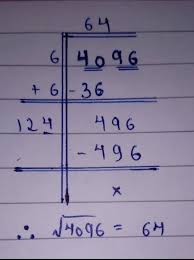 64
6 4096
+ 6 -36
124 496
- 496
×
∴ √4096 = 64